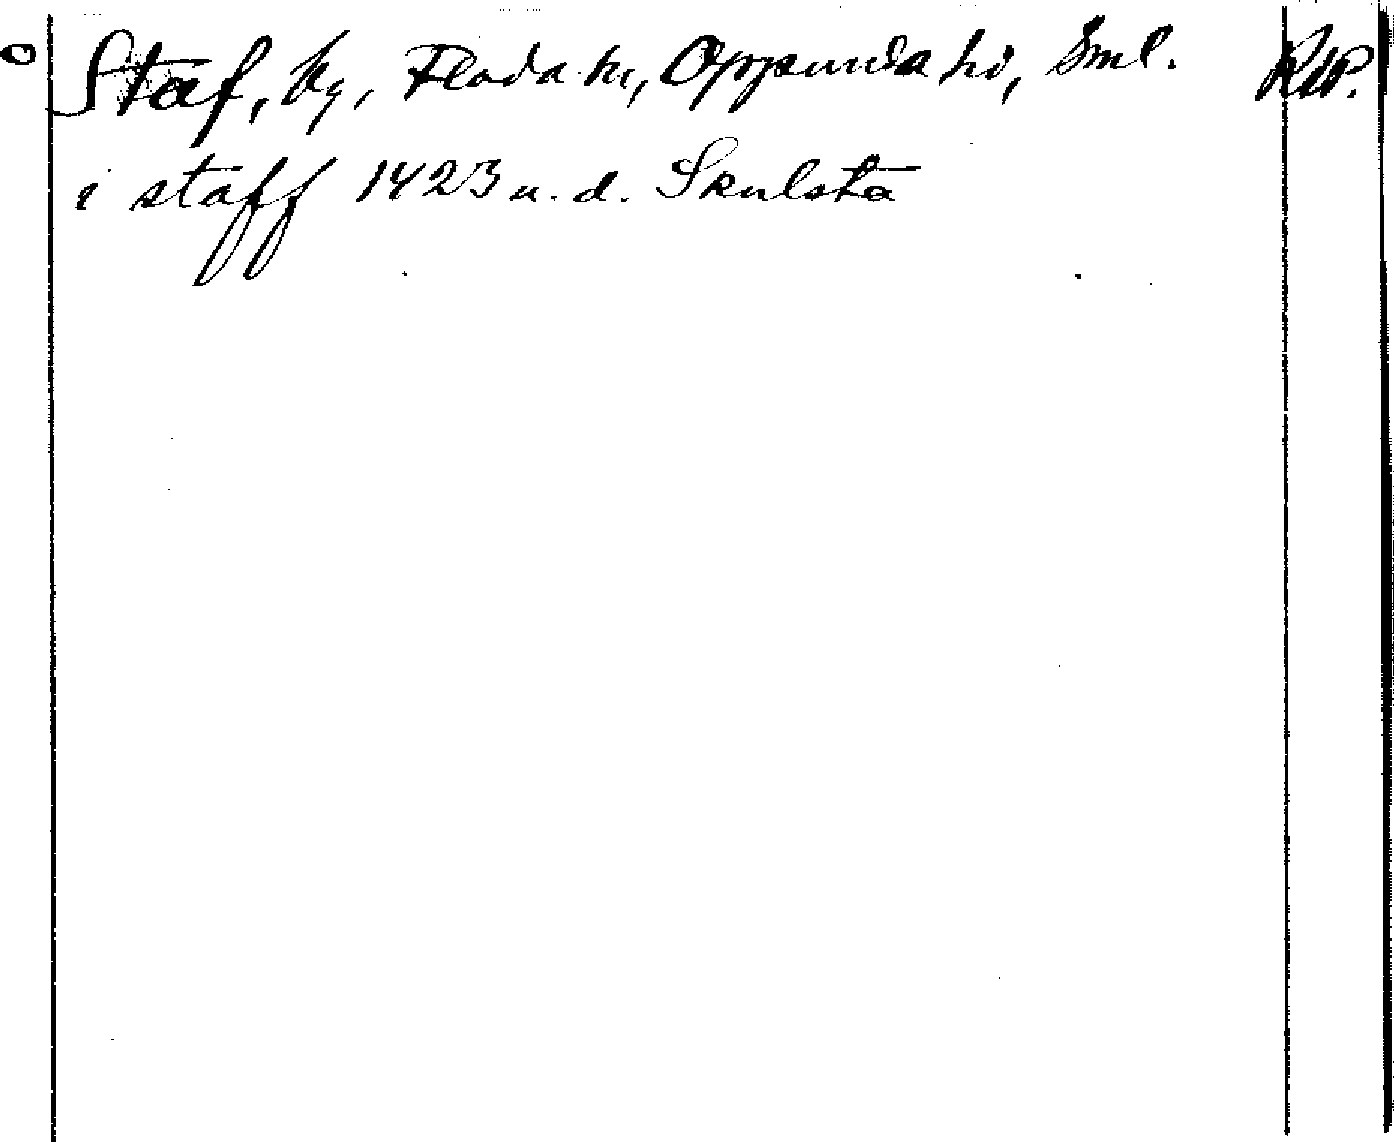 Staf, by, Floda sn, Oppunda hd, Sml. Rep.
i staff 1423 u. d. Skulsta